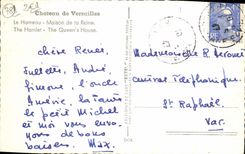 Chateau de Versailles
Le Hameau - Maison de la Reine.
The Hamlet - The Queen's House.
chère Renée,
Juliette, André,
Simone, l'oncle
André, la tante
le petit Michel
et moi vous envo
yons de bons
baisers. Max.
Mademoiselle R.
centrale Téléphonique
St Raphaël
Var.